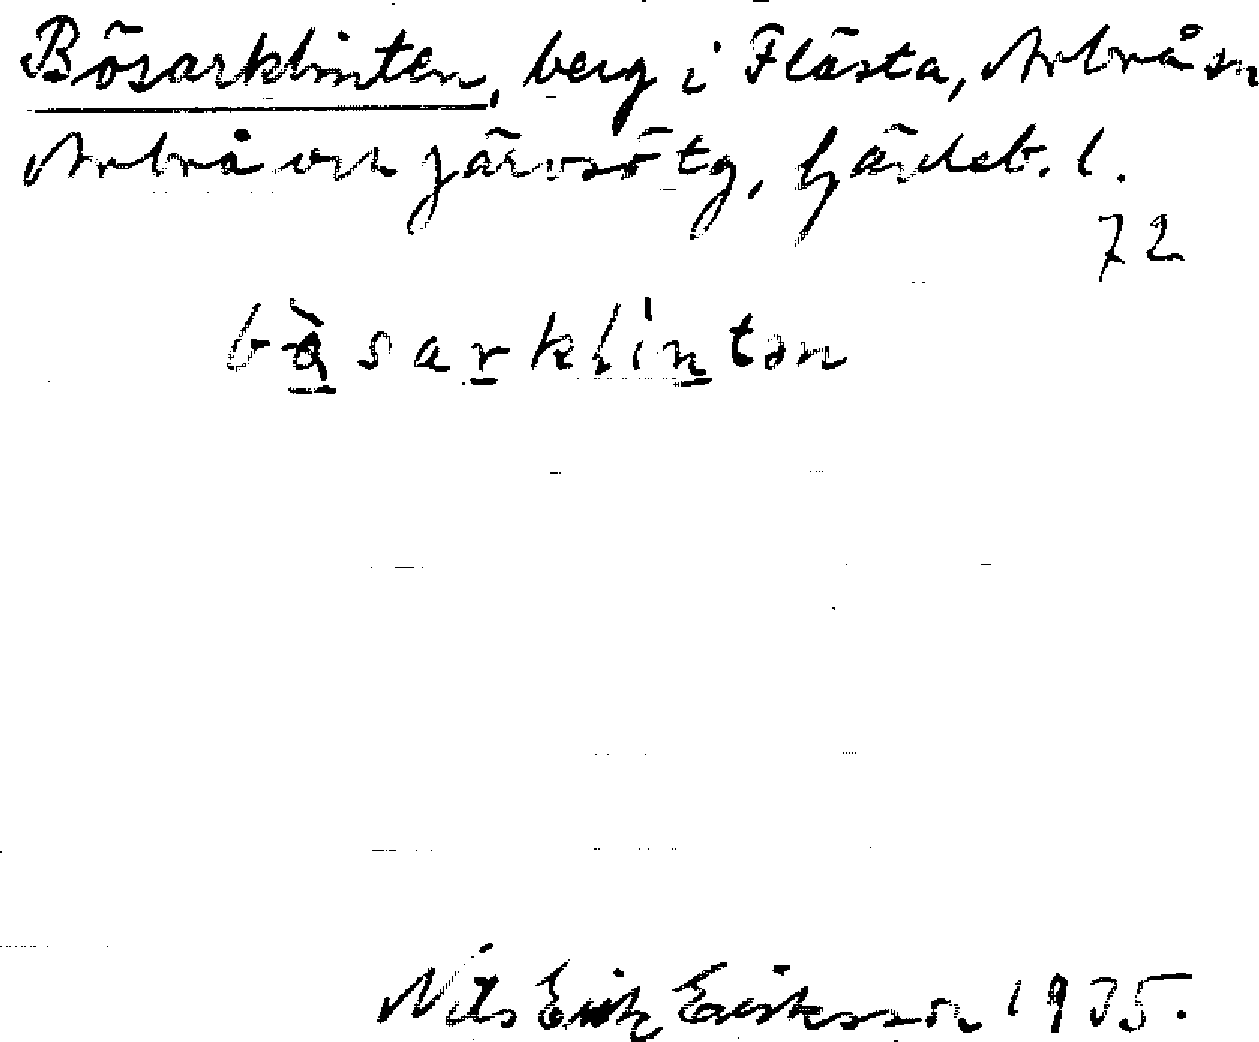 Bösarklinten, berg i Flästa, Arbrå sn
Arbrå och Järvsö tg, Gävleb. l.
72
bàsarklinton
Nils Erik Eriksson 1935.